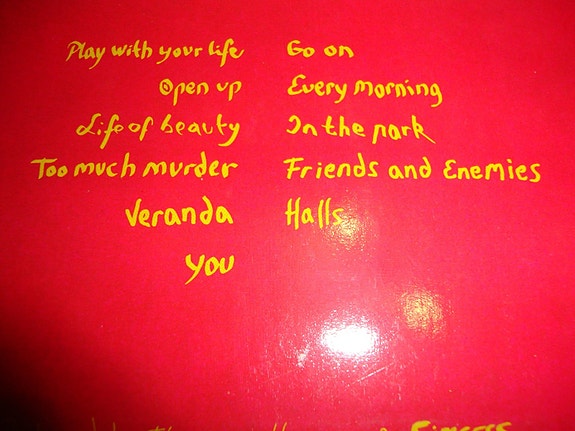 Play with your life
Open up
Life of beauty
Too much murder
Veranda
You
Go on
Every morning
In the park
Friends and Enemies
Halls